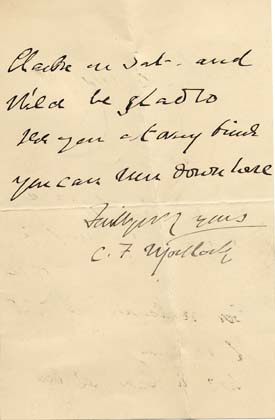 on Sat. and
be glad to
see you at any time
you can run down here
Faithfully yours
C. F.